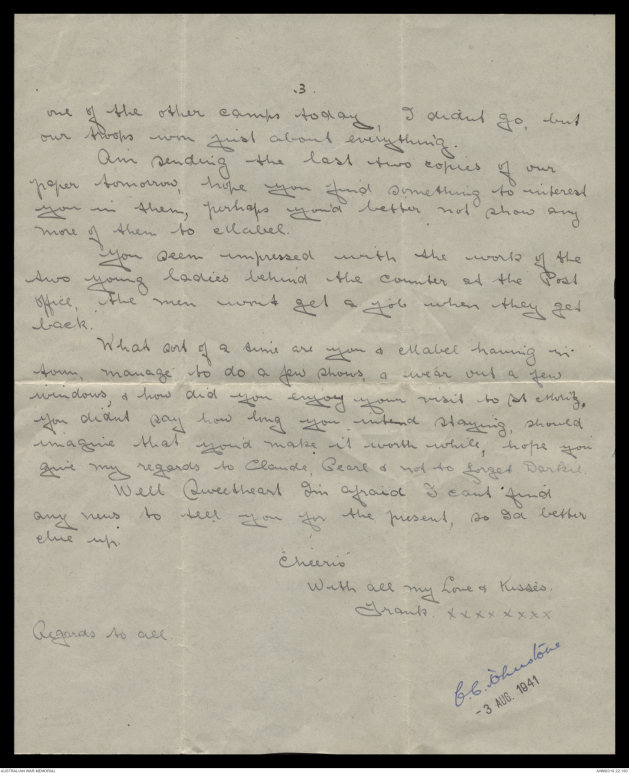 .3.
one of the other camps today, I didnt go, but
our troops won just about everything.
Am sending the last two copies of our
paper tomorrow, hope you find something to interest
you in them, perhaps you'd better not show any
more of them to Mabel.
You seem impressed with the work of the
two young ladies behind the counter at the Post
office, the men wont get a job when they get
back.
What sort of a time are you & Mabel having in
town, manage to do a few shows, & wear out a few
windows, & how did you enjoy your visit to St Moritz,
you didnt say how long you intend staying, should
imagine that you'd make it worth while, hope you
give my regards to Claude, Pearl & not to forget Darkie.
Well Sweetheart I'm afraid I cant find
any news to tell you for the present, so I'd better
clue up.
Cheerio
With all my Love & Kisses.
Frank. x x x x x x x x
Regards to all.
C.C. Johnstone
-3 AUG. 1941
AUSTRALIAN WAR MEMORIAL